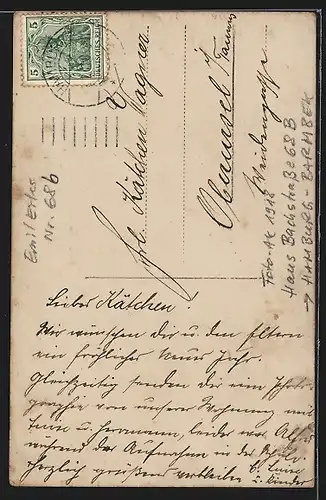 5
5
DEUTSCHES REICH
Frl. Käthchen Wagner
Oberursel i/ Taunus
Weidengasse
Emil Erker
Nr. 68b
Foto-AK 1918
Hans Bachstraße 68 B
→ HAMBURG - BARMBEK
Liebes Kätchen!
Wir wünschen dir u. den Eltern
ein fröhliches Neues Jahr.
Gleichzeitig senden dir eine Photo-
graphie von unserer Wohnung mit
Tuine u. Hermann, leider war
während der Aufnahme in der Schule.
Herzlich grüßend verbleiben
u. Kinder